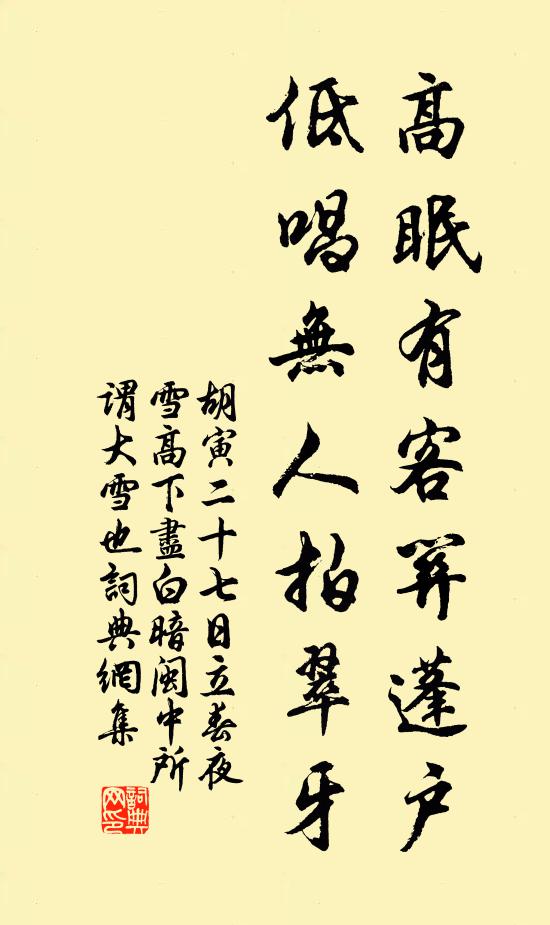 高眠有客關蓬戶
低唱無人拍翠牙
胡寅二十七日立春夜
雪高下盡白暗閩中所
謂大雪也詞典網集
詞典
网印